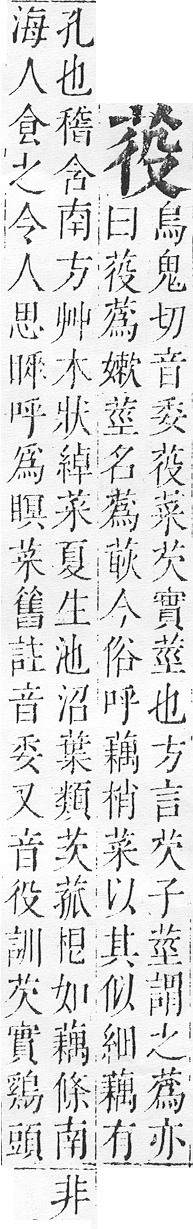 䓈
烏鬼切音委䓈菜芡實莖也方言芡子莖謂之蒍亦
曰䓈蒍嫰莖名蒍今俗呼藕梢菜以其似細藕有
孔也稽含南方艸木狀綽菜夏生池沼葉類茨菰根如藕條南
海人食之令人思睡呼爲瞑菜舊註音委又音役訓芡實鷄頭
非